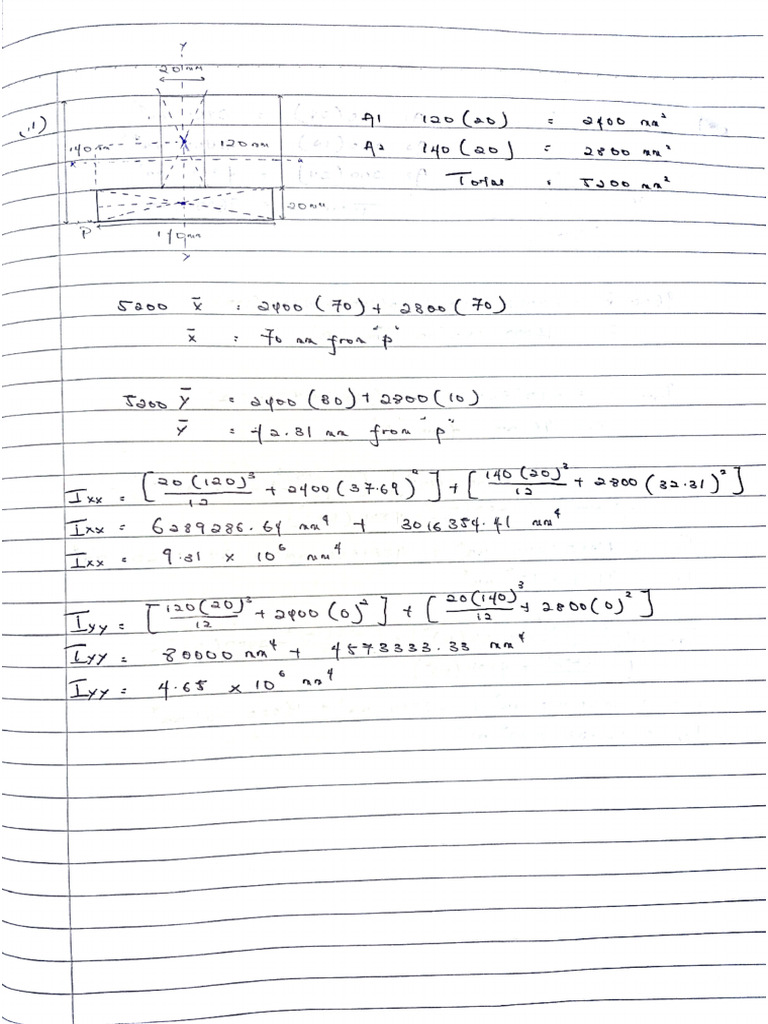 Y
20mm
1)
A1 120(20) = 2400 mm²
140mm 120mm
A2 = 140(20) = 2800 mm²
x x
Total = 5200 mm²
20mm
P
140mm
Y
5200 x̄ = 2400(70) + 2800(70)
x̄ = 70 mm from "p"
5200 ȳ = 2400(80) + 2800(10)
ȳ = 42.31 mm from "p"
Ixx = [20(120)³/12 + 2400(37.69)²] + [140(20)³/12 + 2800(32.31)²]
Ixx = 6289286.64 mm⁴ + 3016354.41 mm⁴
Ixx = 9.31 x 10⁶ mm⁴
Iyy = [120(20)³/12 + 2400(0)²] + [20(140)³/12 + 2800(0)²]
Iyy = 80000 mm⁴ + 4573333.33 mm⁴
Iyy = 4.65 x 10⁶ mm⁴